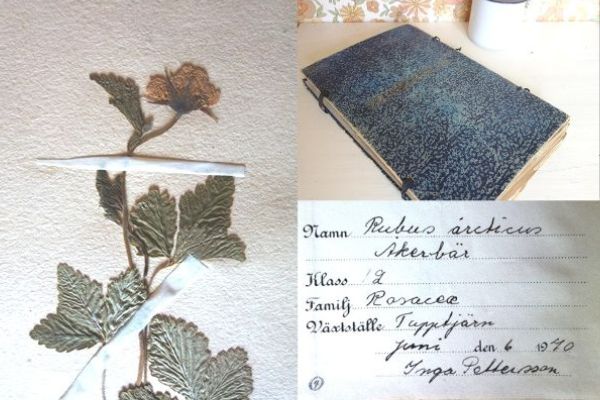 Namn Rubus árcticus
Åkerbär
Klass 12
Familj Rosaceæ
Växtställe Tupptjärn
juni den 6 1970
Inga Pettersson
9